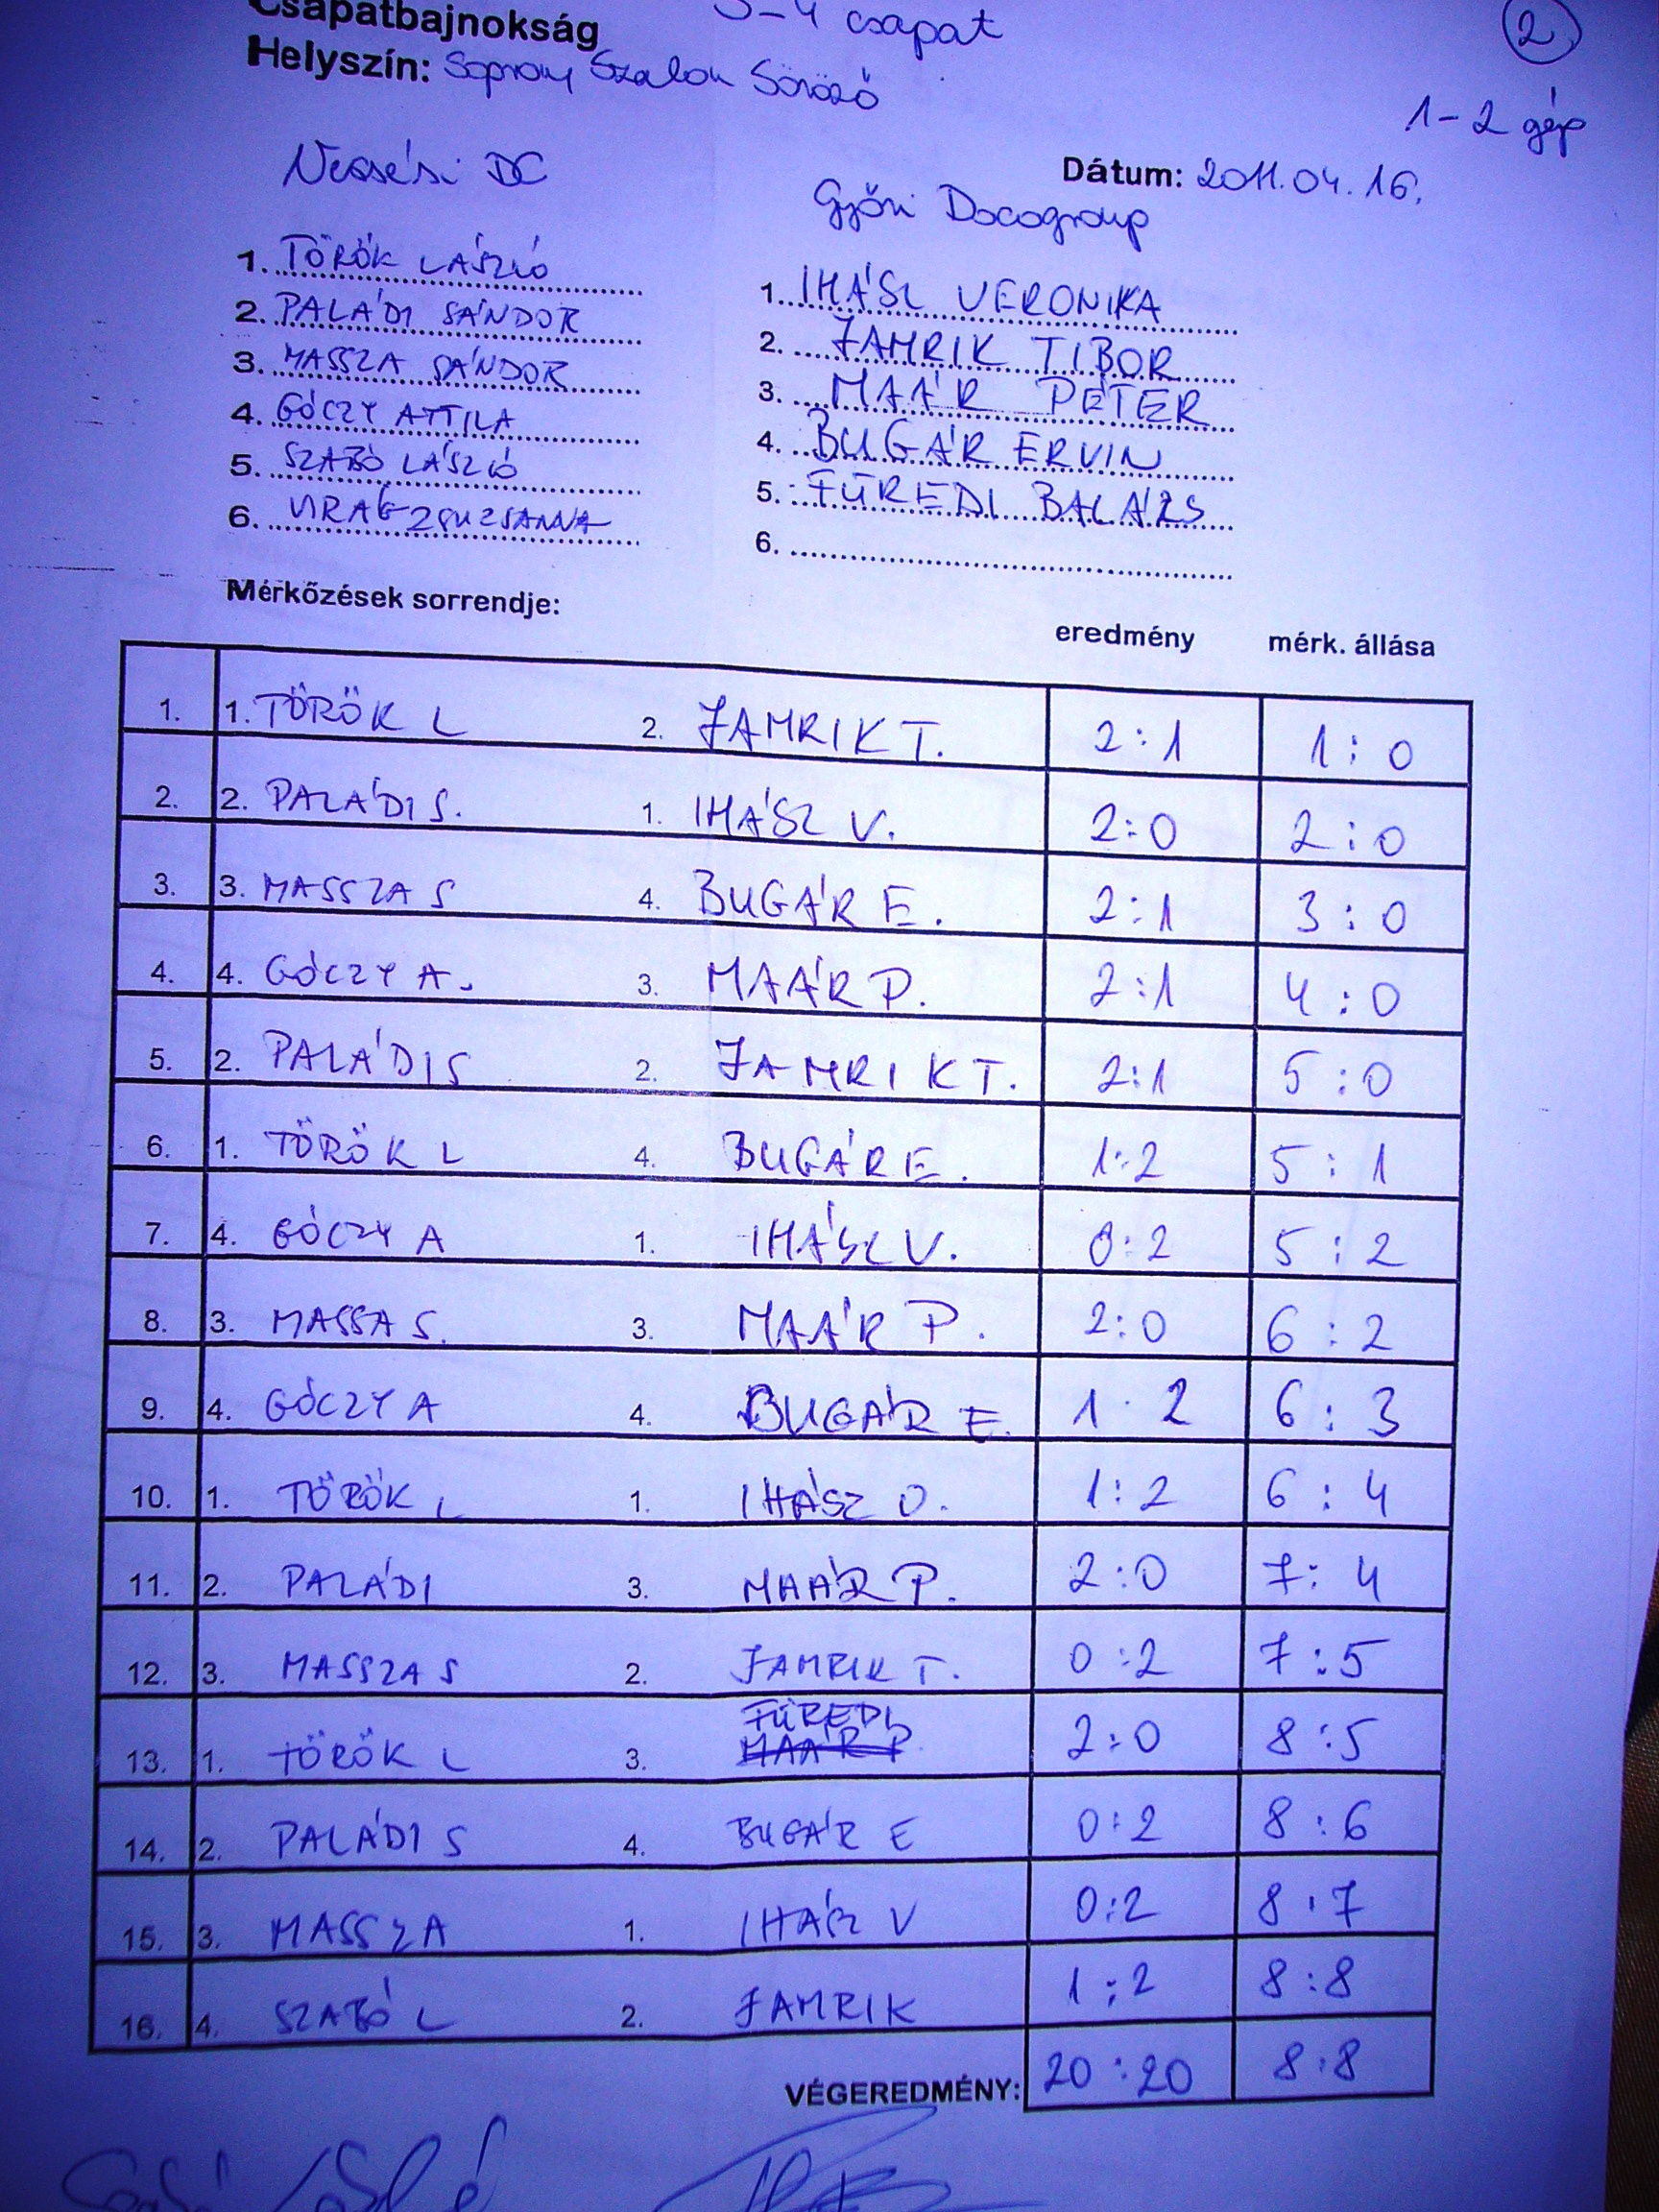 Csapatbajnokság 3-4 csapat
2
Helyszín: Soprony Szalon Söröző
1-2 gép
DC
Dátum: 2011.04.16.
Győri Docogroup
1. TÖRÖK LÁSZLÓ
2. PALÁDI SÁNDOR
3. MASSZA SÁNDOR
4. GÓCZY ATTILA
5. SZABÓ LÁSZLÓ
6. VIRÁG ZSUZSANNA
1. IHÁSZ VERONIKA
2. JAMRIK TIBOR
3. MAÁR PÉTER
4. BUGÁR ERVIN
5. FÜREDI BALÁZS
6.
Mérkőzések sorrendje:
eredmény mérk. állása
1. 1. TÖRÖK L 2. JAMRIK T. 2:1 1:0
2. 2. PALÁDI S. 1. IHÁSZ V. 2:0 2:0
3. 3. MASSZA S 4. BUGÁR E. 2:1 3:0
4. 4. GÓCZY A. 3. MAÁR P. 2:1 4:0
5. 2. PALÁDI S 2. JAMRIK T. 2:1 5:0
6. 1. TÖRÖK L 4. BUGÁR E. 1:2 5:1
7. 4. GÓCZY A 1. IHÁSZ V. 0:2 5:2
8. 3. MASSA S. 3. MAÁR P. 2:0 6:2
9. 4. GÓCZY A 4. BUGÁR E. 1:2 6:3
10. 1. TÖRÖK L 1. IHÁSZ V. 1:2 6:4
11. 2. PALÁDI 3. MAÁR P. 2:0 7:4
12. 3. MASSZA S 2. JAMRIK T. 0:2 7:5
FÜREDI
13. 1. TÖRÖK L 3. MAÁR P. 2:0 8:5
14. 2. PALÁDI S 4. BUGÁR E 0:2 8:6
15. 3. MASSZA 1. IHÁSZ V 0:2 8:7
16. 4. SZABÓ L 2. JAMRIK 1:2 8:8
VÉGEREDMÉNY: 20:20 8:8